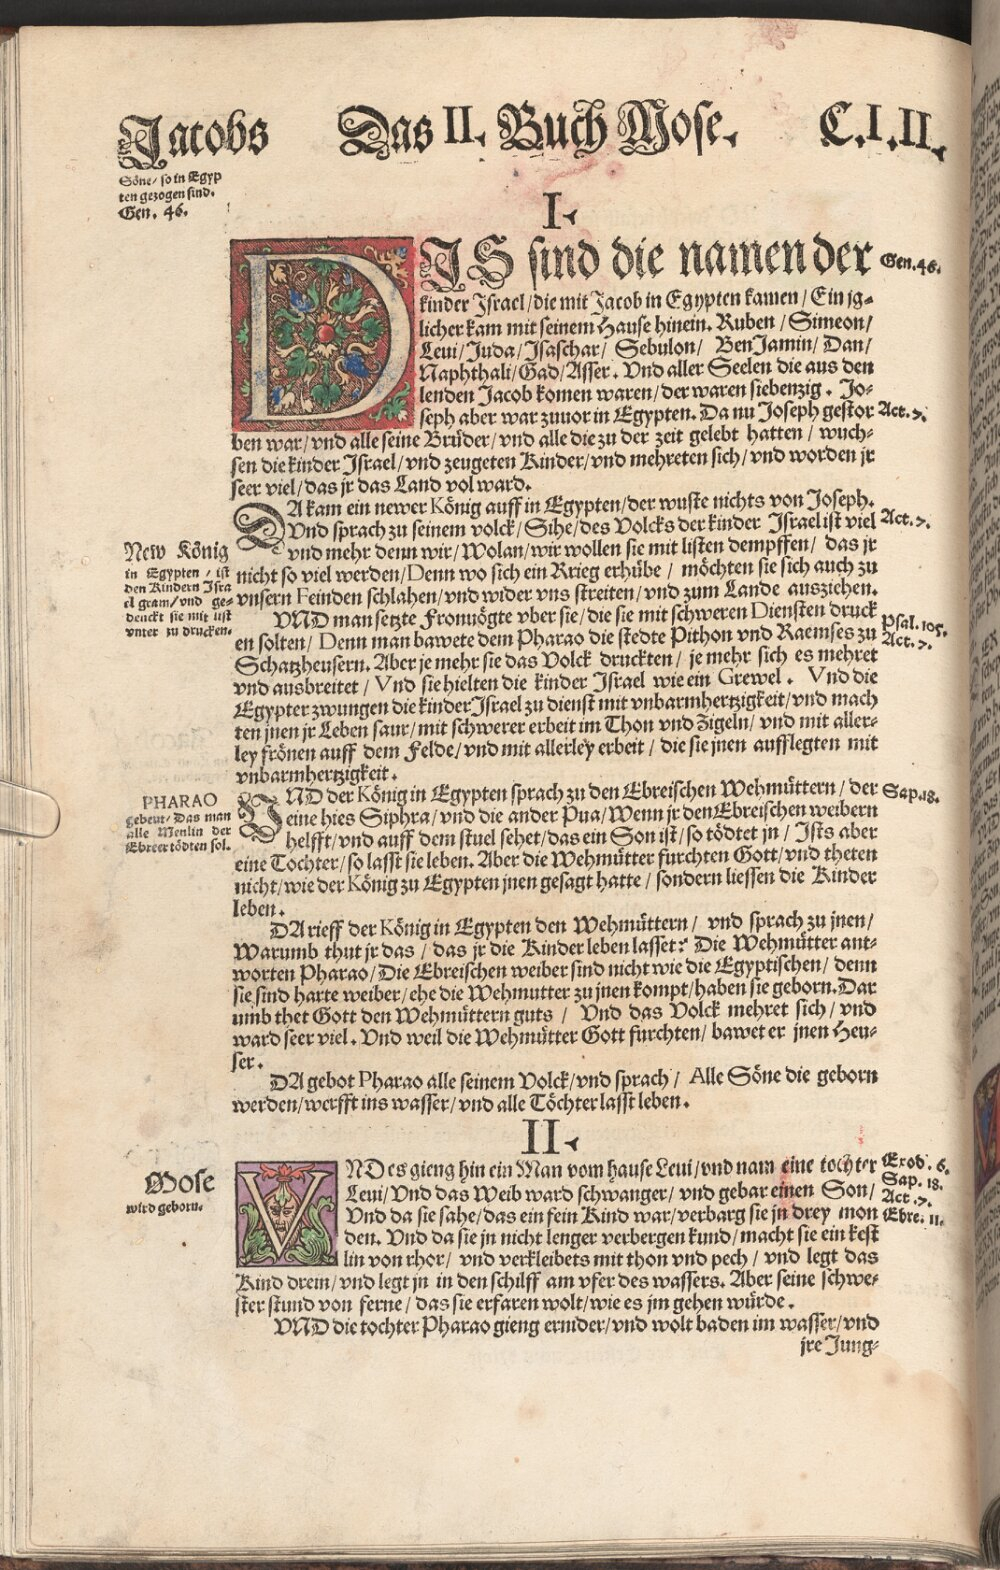 Jacobs
Das II. Buch Mose.
C. I. II.
Söne/ so in Egyp
ten gezogen sind.
Gen. 46.
I.
DIS sind die namen der
Gen. 46.
kinder Jsrael/die mit Jacob in Egypten kamen/Ein jg-
licher kam mit seinem Hause hinein. Ruben/Simeon/
Leui/Juda/Jsaschar/ Sebulon/ BenJamin/ Dan/
Naphthali/Gad/Asser. Vnd aller Seelen die aus den
lenden Jacob komen waren/der waren siebenzig. Jo-
seph aber war zuuor in Egypten. Da nu Joseph gestor
Act. 7.
ben war/vnd alle seine Brüder/vnd alle die zu der zeit gelebt hatten/ wuch-
sen die kinder Jsrael/vnd zeugeten Kinder/vnd mehreten sich/vnd worden jr
seer viel/das jr das Land vol ward.
DA kam ein newer König auff in Egypten/der wuste nichts von Joseph.
Vnd sprach zu seinem volck/Sihe/des Volcks der kinder Jsrael ist viel
Act. 7.
vnd mehr denn wir/Wolan/wir wollen sie mit listen dempffen/ das jr
nicht so viel werden/Denn wo sich ein Krieg erhübe/ möchten sie sich auch zu
vnsern Feinden schlahen/vnd wider vns streiten/vnd zum Lande ausziehen.
New König
in Egypten/ ist
den Kindern Jsra
el gram/vnd ge-
denckt sie mit list
vnter zu drucken.
VND man setzte Fronuögte vber sie/die sie mit schweren Diensten druck
en solten/ Denn man bawete dem Pharao die stedte Pithon vnd Raemses zu
Psal. 105.
Act. 7.
Schatzheusern. Aber je mehr sie das Volck druckten/ je mehr sich es mehret
vnd ausbreitet/ Vnd sie hielten die kinder Jsrael wie ein Grewel. Vnd die
Egypter zwungen die kinder Jsrael zu dienst mit vnbarmhertzigkeit/vnd mach
ten jnen jr Leben saur/mit schwerer erbeit im Thon vnd Zigeln/ vnd mit aller-
ley frönen auff dem Felde/vnd mit allerley erbeit/ die sie jnen aufflegten mit
vnbarmhertzigkeit.
PHARAO
gebeut/ Das man
alle Menlin der
Ebreer tödten sol.
VND der König in Egypten sprach zu den Ebreischen Wehmüttern/ der
Sap. 18.
eine hies Siphra/vnd die ander Pua/Wenn jr den Ebreischen weibern
helfft/vnd auff dem stuel sehet/das ein Son ist/so tödtet jn/ Jsts aber
eine Tochter/so lasst sie leben. Aber die Wehmütter furchten Gott/vnd theten
nicht/wie der König zu Egypten jnen gesagt hatte/ sondern liessen die Kinder
leben.
DA rieff der König in Egypten den Wehmüttern/ vnd sprach zu jnen/
Warumb thut jr das/ das jr die Kinder leben lasset? Die Wehmütter ant-
worten Pharao/Die Ebreischen weiber sind nicht wie die Egyptischen/ denn
sie sind harte weiber/ehe die Wehmutter zu jnen kompt/haben sie geborn. Dar
umb thet Gott den Wehmüttern guts/ Vnd das Volck mehret sich/ vnd
ward seer viel. Vnd weil die Wehmütter Gott furchten/ bawet er jnen Heu-
ser.
DA gebot Pharao alle seinem Volck/vnd sprach/ Alle Söne die geborn
werden/werfft ins wasser/vnd alle Töchter lasst leben.
II.
Mose
wird geborn.
VND es gieng hin ein Man vom hause Leui/vnd nam eine tochter
Leui/Vnd das Weib ward schwanger/ vnd gebar einen Son/
Vnd da sie sahe/das ein fein Kind war/verbarg sie jn drey mon
Exod. 6.
Sap. 18.
Act. 7.
Ebre. 11.
den. Vnd da sie jn nicht lenger verbergen kund/macht sie ein kest
lin von rhor/ vnd verkleibets mit thon vnd pech/ vnd legt das
Kind drein/vnd legt jn in den schilff am vfer des wassers. Aber seine schwe-
ster stund von ferne/das sie erfaren wolt/wie es jm gehen würde.
VND die tochter Pharao gieng ernider/vnd wolt baden im wasser/vnd
jre Jung-